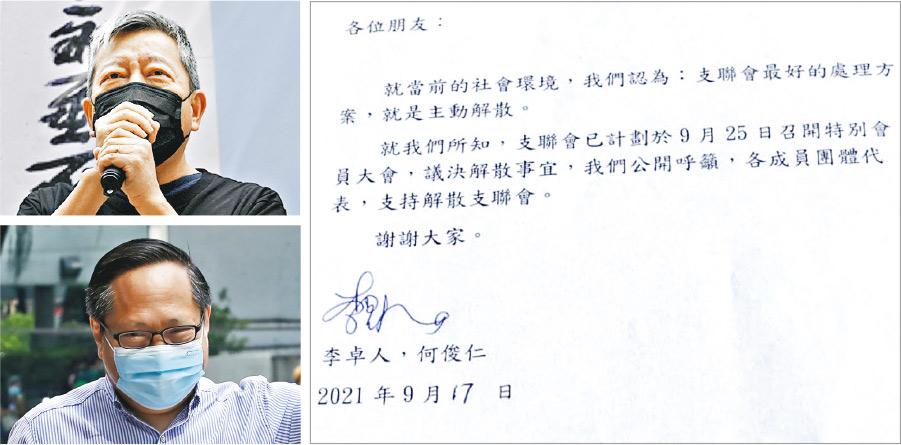 各位朋友：
就當前的社會環境，我們認為：支聯會最好的處理方
案，就是主動解散。
就我們所知，支聯會已計劃於9月25日召開特別會
員大會，議決解散事宜，我們公開呼籲，各成員團體代
表，支持解散支聯會。
謝謝大家。
李卓人，何俊仁
2021年9月17日